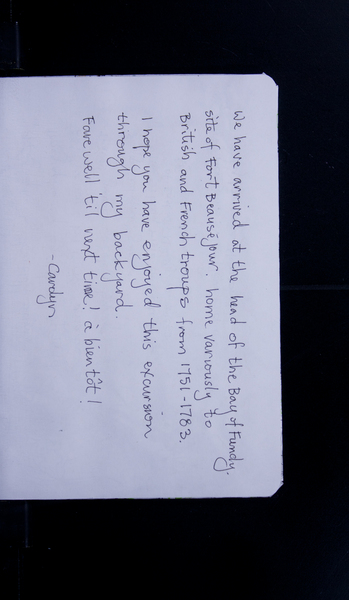 We have arrived at the head of the Bay of Fundy.
site of Fort Beauséjour. home variously to
British and French troups from 1751-1783.
I hope you have enjoyed this excursion
through my backyard.
Farewell 'til next time! à bientôt!
- Carolyn